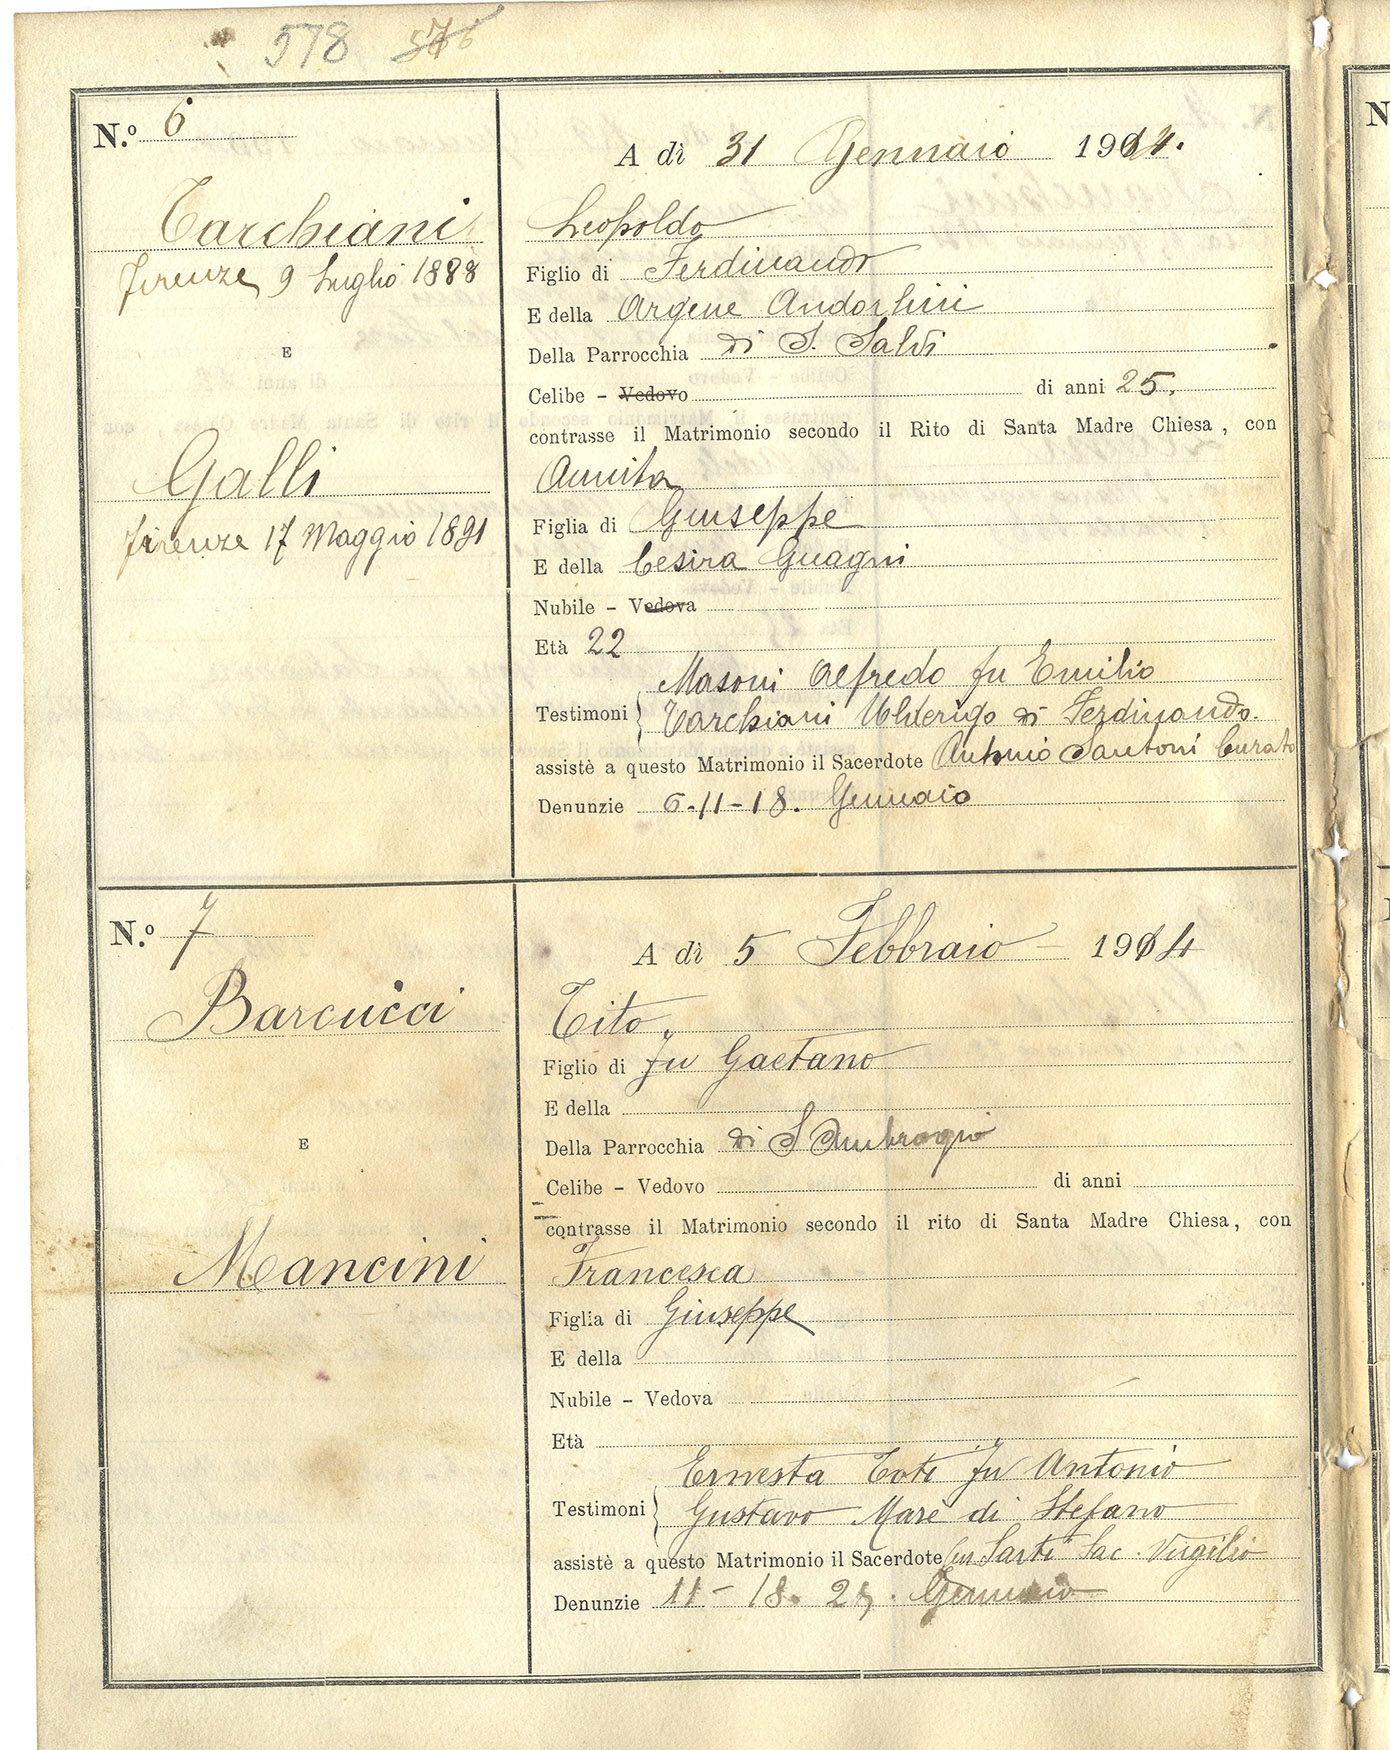 578 576
N.º 6
A dì 31 Gennaio 1914.
Tarchiani
Leopoldo
Firenze 9 Luglio 1888
Figlio di Ferdinando
E della Argene Andorlini
E
Della Parrocchia di S. Salvi
Celibe - Vedovo di anni 25.
contrasse il Matrimonio secondo il Rito di Santa Madre Chiesa, con
Galli
Annita
Firenze 17 Maggio 1891
Figlia di Giuseppe
E della Cesira Guagni
Nubile - Vedova
Età 22
Masoni Alfredo fu Emilio
Testimoni
Tarchiani Ulderigo di Ferdinando.
assistè a questo Matrimonio il Sacerdote Antonio Santoni Curato
Denunzie 6-11-18. Gennaio
N.º 7
A dì 5 Febbraio 1914
Barcucci
Tito
Figlio di fu Gaetano
E della
E
Della Parrocchia di S Ambrogio
Celibe - Vedovo di anni
contrasse il Matrimonio secondo il rito di Santa Madre Chiesa, con
Mancini
Francesca
Figlia di Giuseppe
E della
Nubile - Vedova
Età
Ernesta Toti fu Antonio
Testimoni
Gustavo Marè di Stefano
assistè a questo Matrimonio il Sacerdote Sarti Sac. Virgilio
Denunzie 11-18. 25. Gennaio